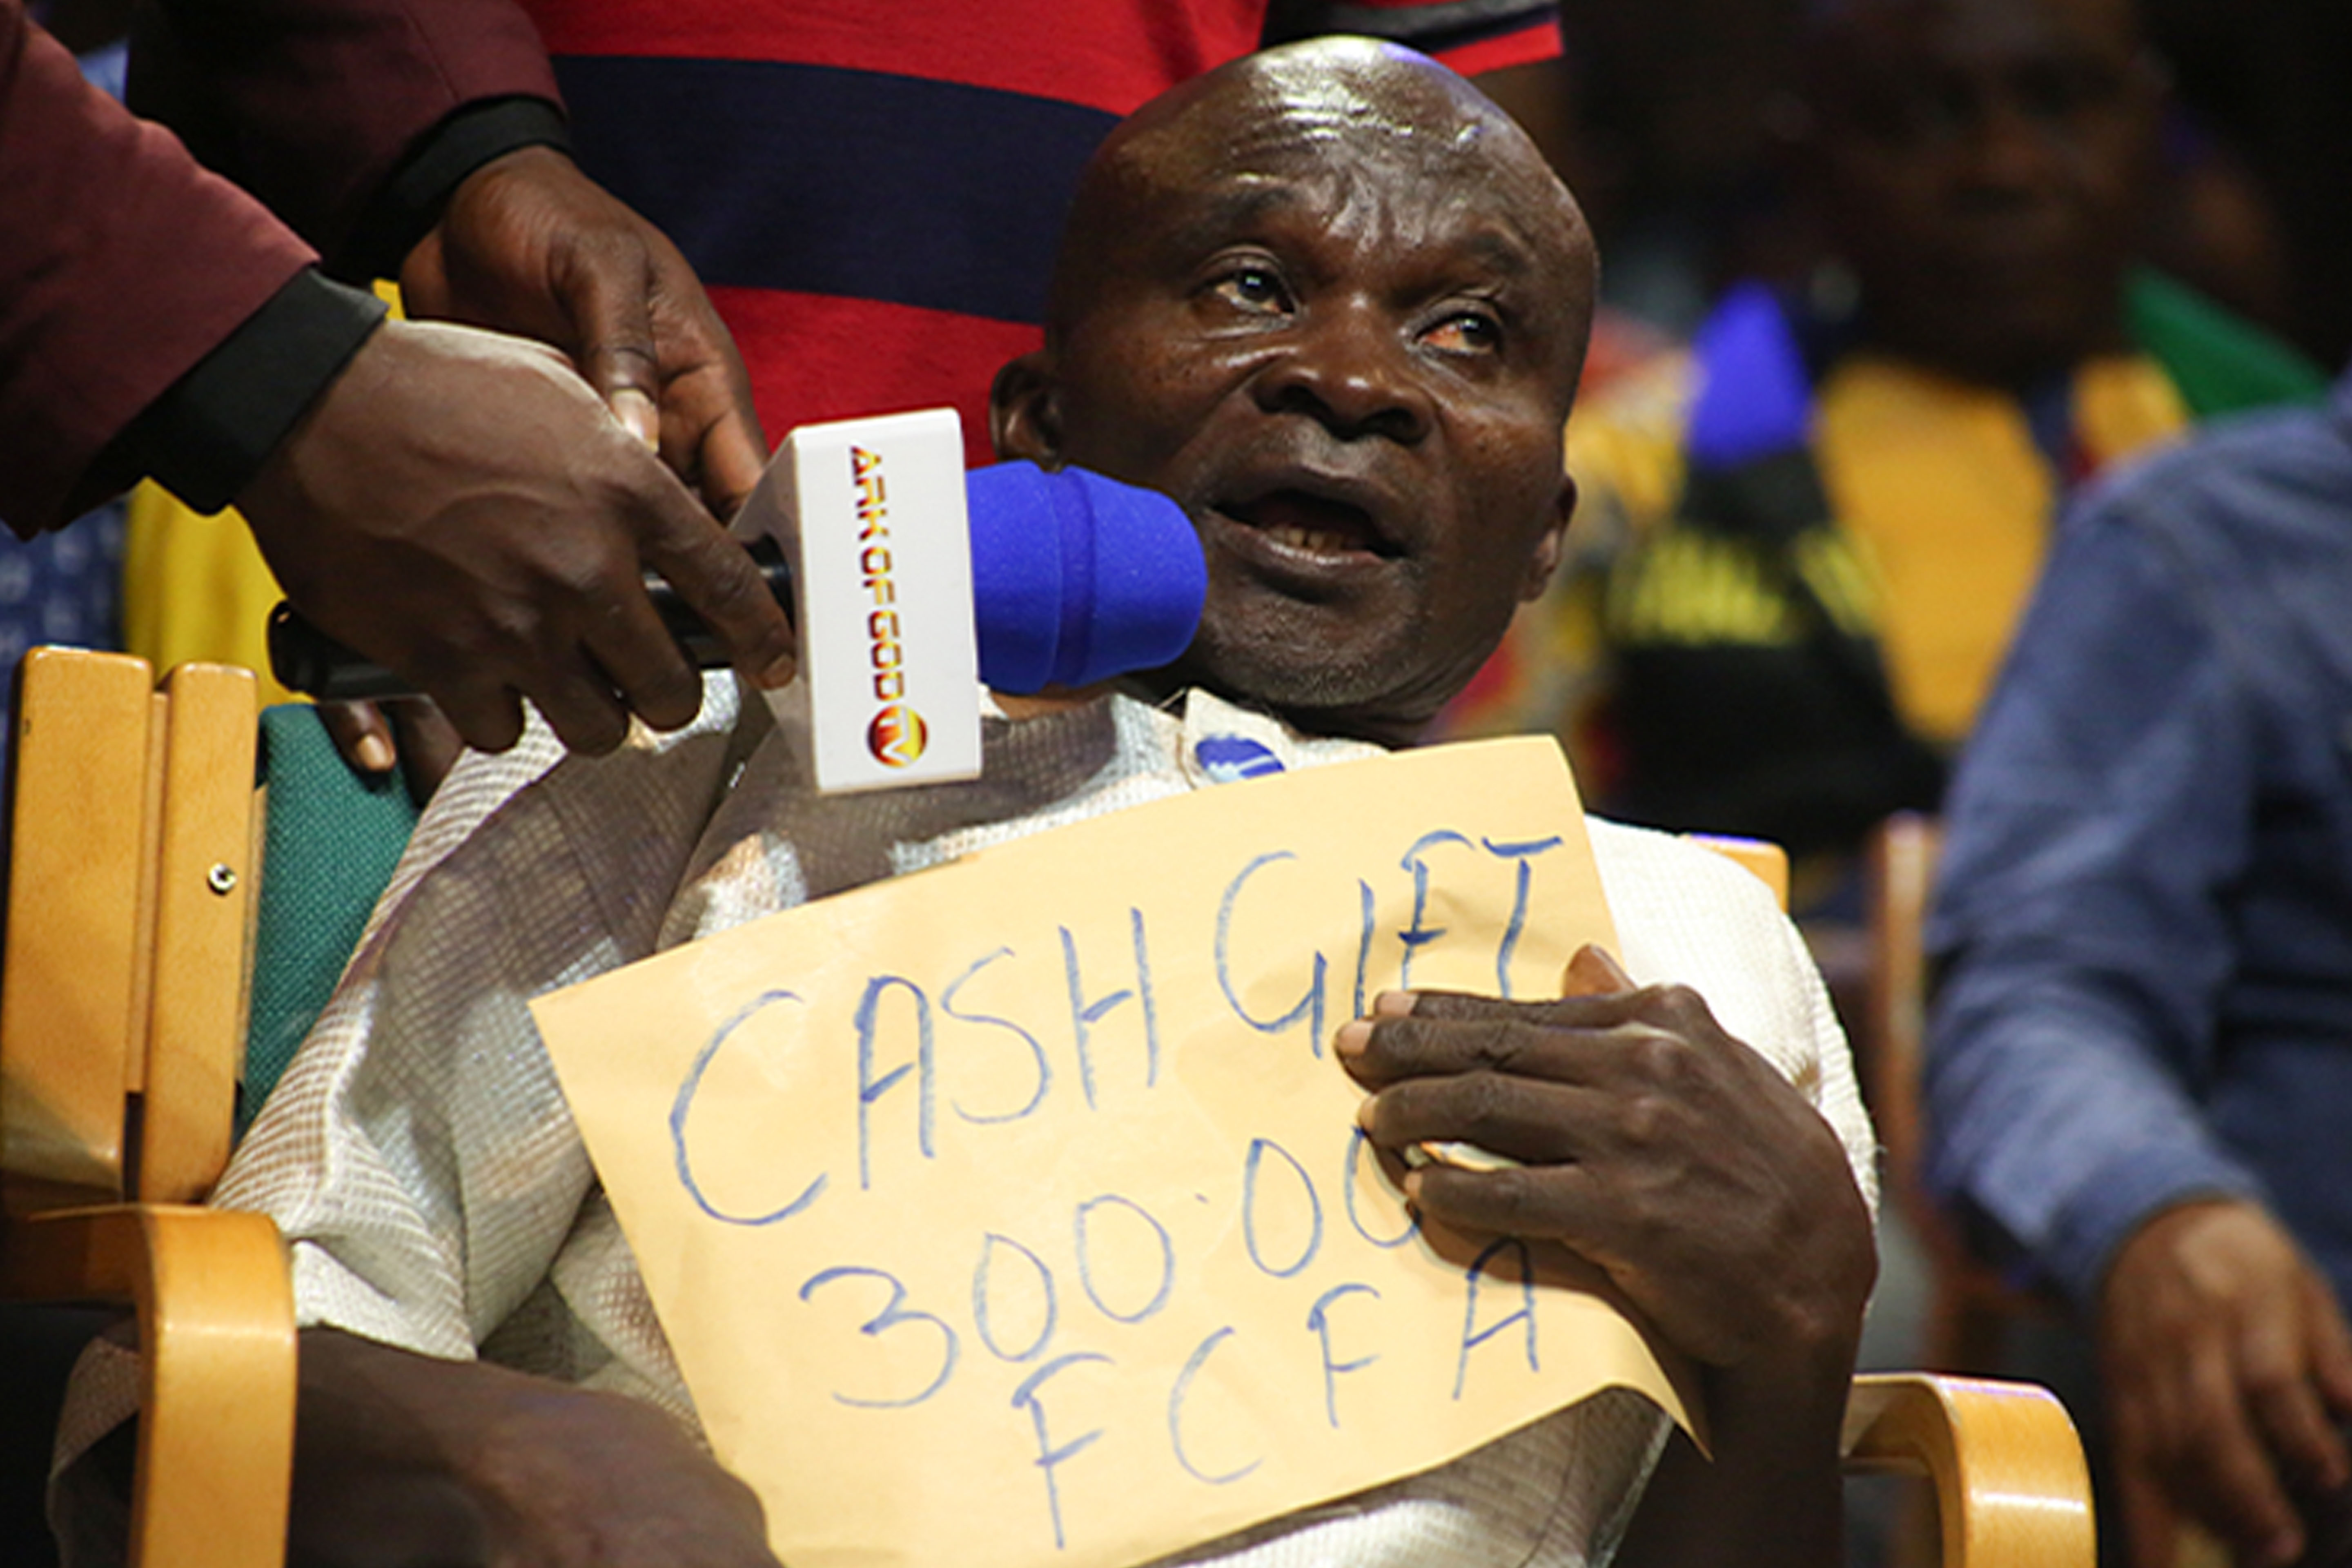 ARK OF GOD TV
CASH GIFT
300.00
FCFA